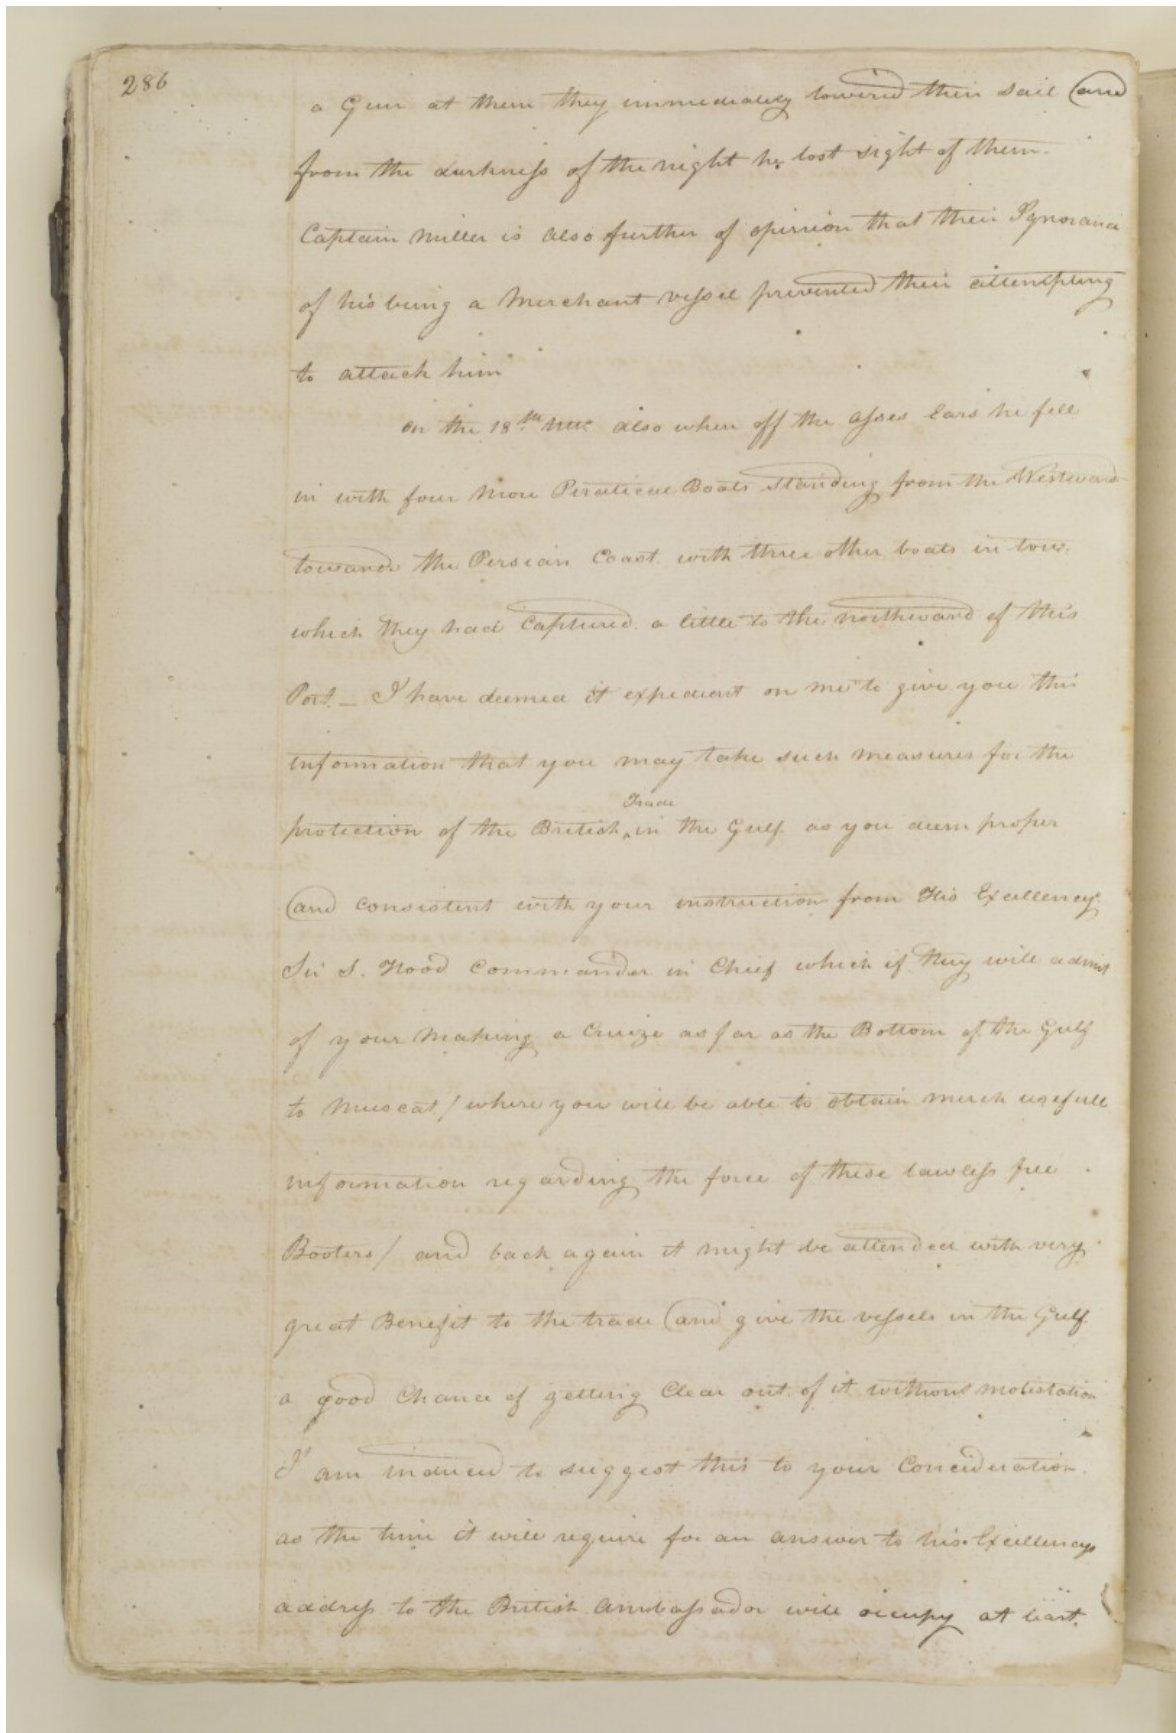 286
a Gun at them they immediately lowered their sail and
from the darkness of the night he lost sight of them.
Captain Miller is also further of opinion that their Ignorance
of his being a Merchant vessel prevented their attempting
to attack him
on the 18th also when off the asses Ears he fell
in with four more Piratical Boats standing from the Westward
towards the Persian Coast with three other boats in tow.
which they had Captured a little to the northward of this
Port_ I have deemed it expedient on me to give you this
information that you may take such measures for the
protection of the British Trade in the Gulf as you deem proper
and consistent with your instruction from His Excellency
Sir S. Hood Commander in Chief which if they will admit
of your making a Cruize as far as the Bottom of the Gulf
to Muscat / where you will be able to obtain much usefull
information regarding the force of these lawless free
Booters / and back again it might be attended with very
great Benefit to the trade and give the vessels in the Gulf
a good Chance of getting Clear out of it without molestation
I am induced to suggest this to your Concideration.
as the time it will require for an answer to his Excellencys
address to the British Ambassador will occupy at least.